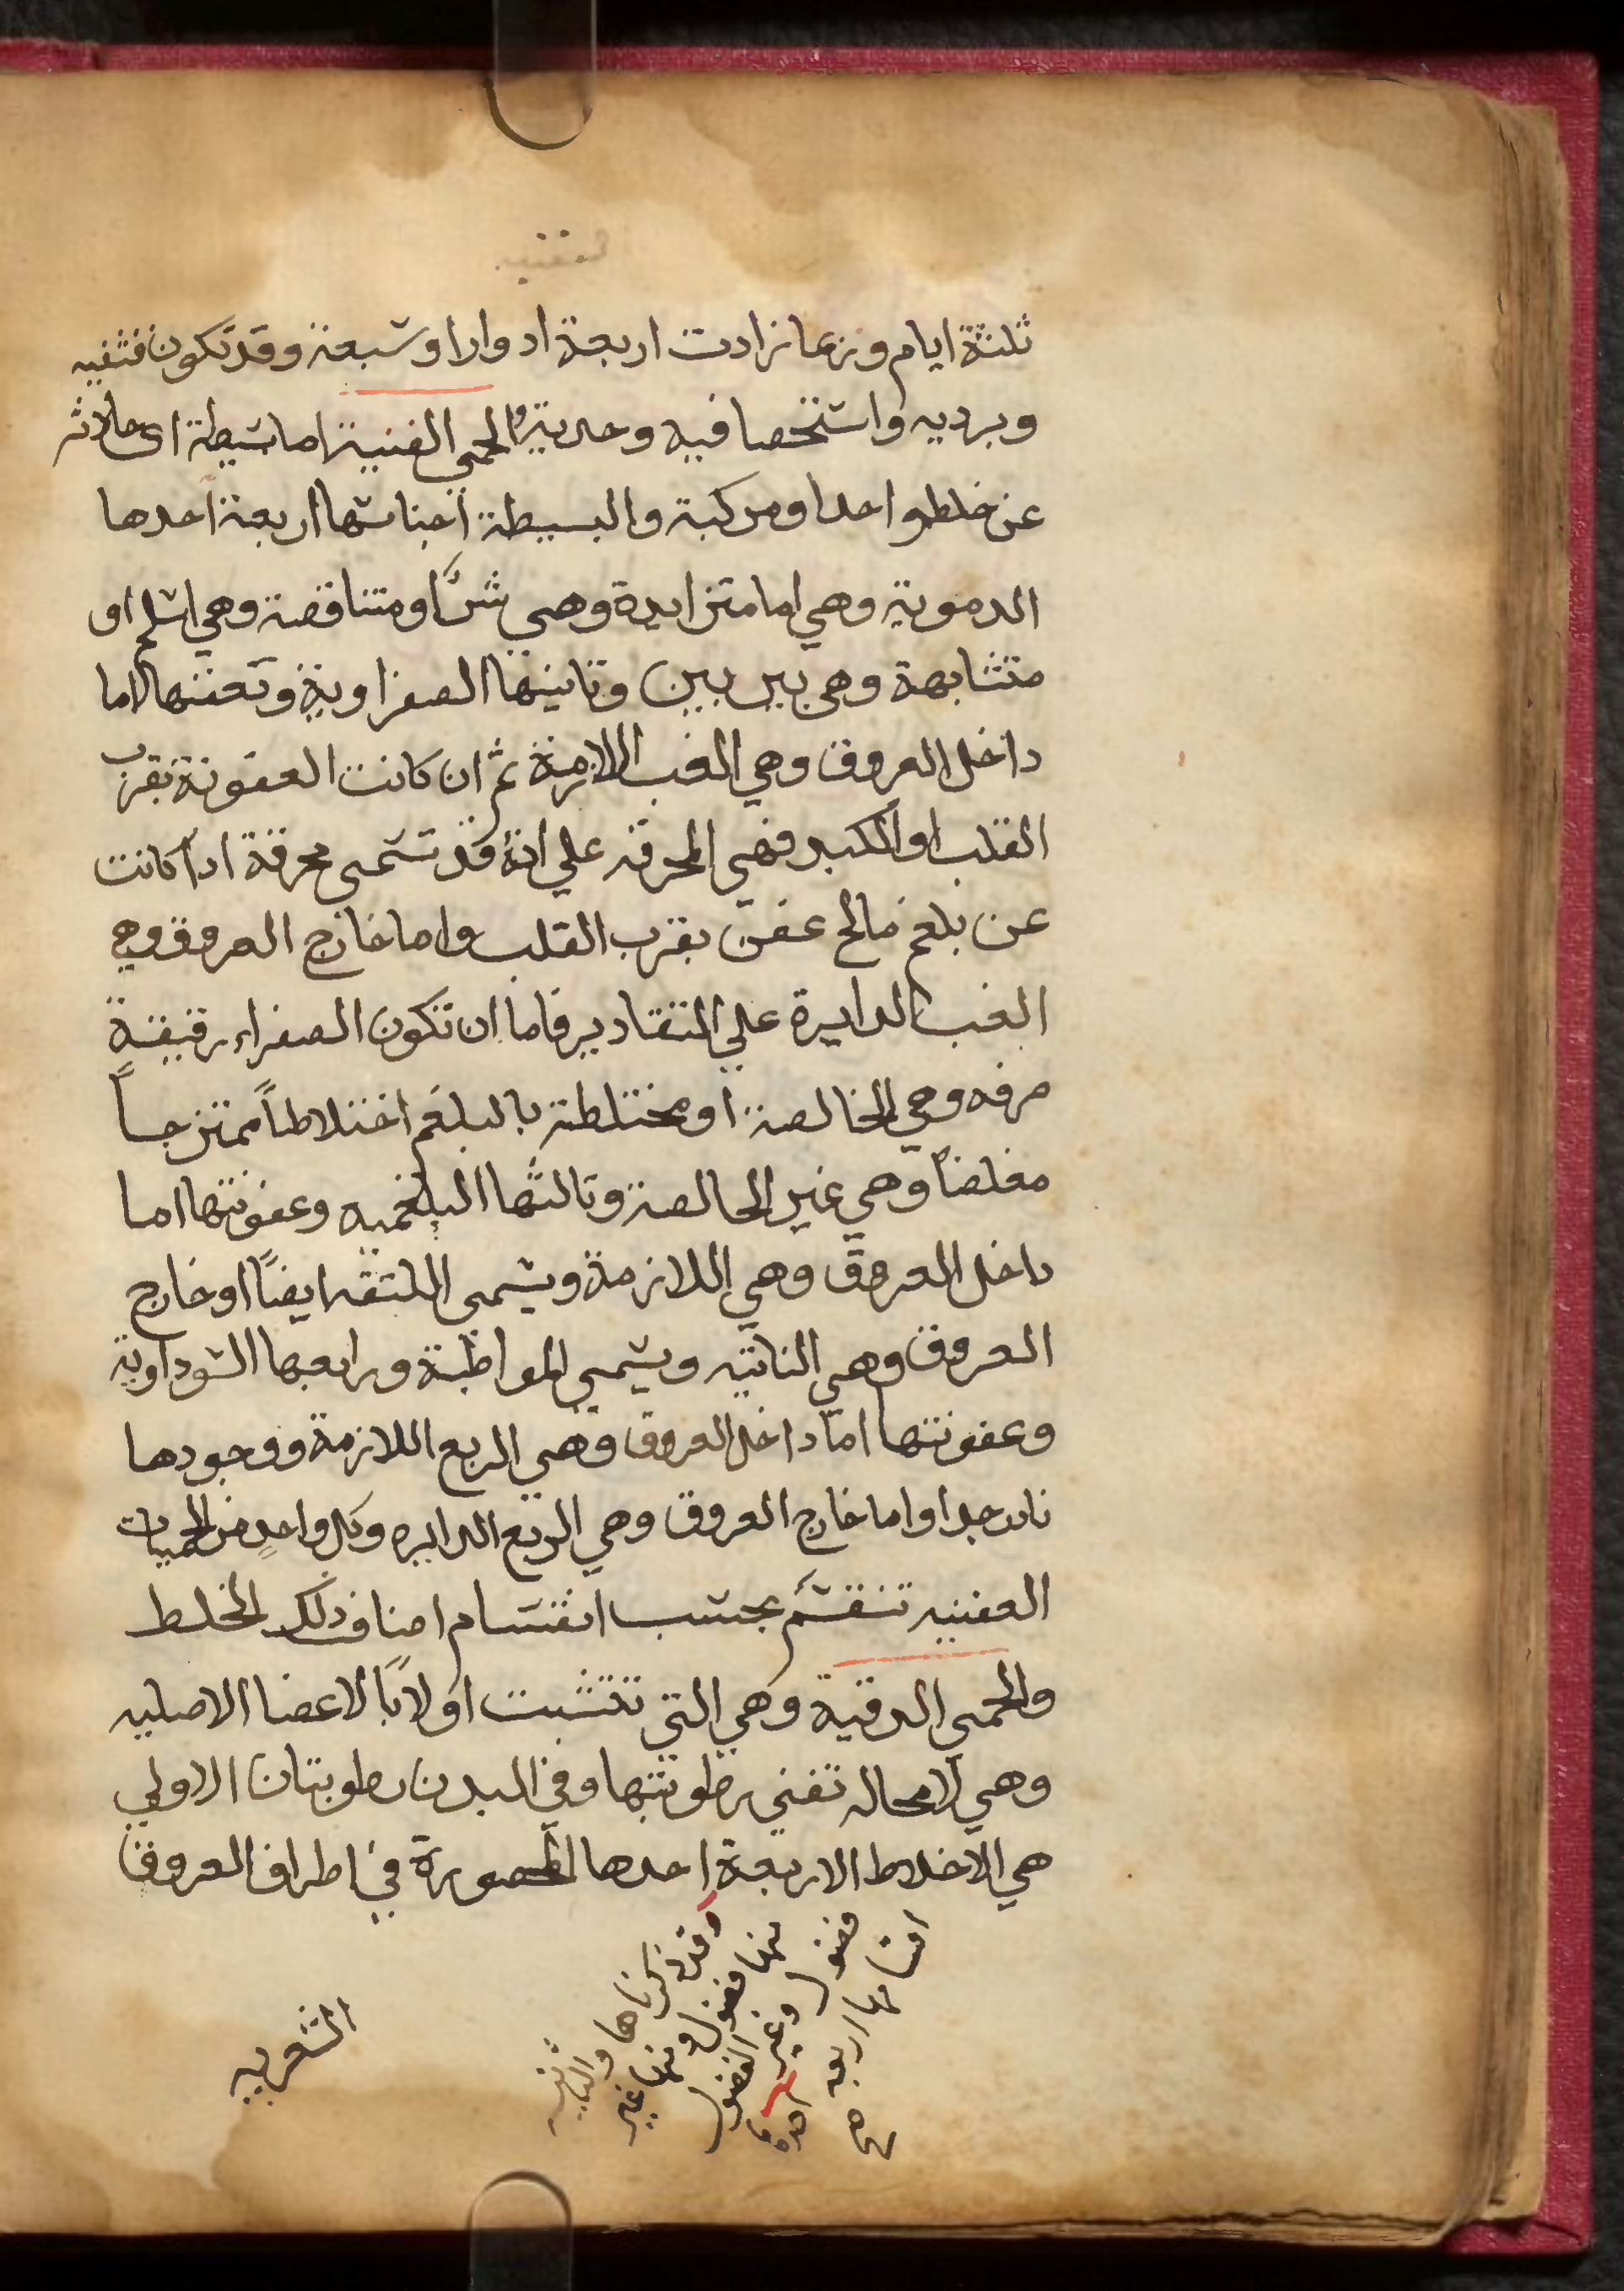 ثلثة ايام وربما زادت اربعة ادوارا وسبعة وقد تكون قشفيه
وبرديه واستحصافيه وحدية والحمى العفنية اما بسيطة اى حادثه
عن خلط واحد او مركبة والبسيطة اجناسها اربعة احدها
الدموية وهي اما متزايدة وهي شرٌّ او متناقصة وهي اسلم او
متشابهة وهي بين بين وثانيتها الصفراوية وتعفنها اما
داخل العروق وهي الغب اللازمة ثم ان كانت العفونة بقرب
القلب او الكبد فهي المحرقه علي انه قد تسمى محرقة اذا كانت
عن بلغم مالح عفن بقرب القلب واما خارج العروق وهي
الغب الدايرة علي التقادير فاما ان تكون الصفراء رقيقة
صرفه وهي الخالصة او مختلطة بالبلغم اختلاطاً ممتزجاً
مغلضاً وهي غير الخالصة وثالثها البلغميه وعفونتها اما
داخل العروق وهي اللازمة ويسمى اللثقه ايضاً او خارج
العروق وهي النائبه ويسمى المواظبة ورابعها السوداوية
وعفونتها اما داخل العروق وهي الربع اللازمة ووجودها
نادر جدا واما خارج العروق وهي الربع الدايره وكل واحدٍ من الحميات
العفنيه تنقسم بحسب انقسام اصناف ذلك الخلط
والحمى الدقية وهي التي تتشبت اولاً بالاعضا الاصليه
وهي لا محاله تفني رطوبتها وفي البدن رطوبتان الاولي
هي الاخلاط الاربعة احدها المحصورة في اطراف العروق
وقد ذكرناها والثانيه
منها فضول ومنها غير
فضول وغير الفضول
اقسامها اربعه
احدها
الشعريه